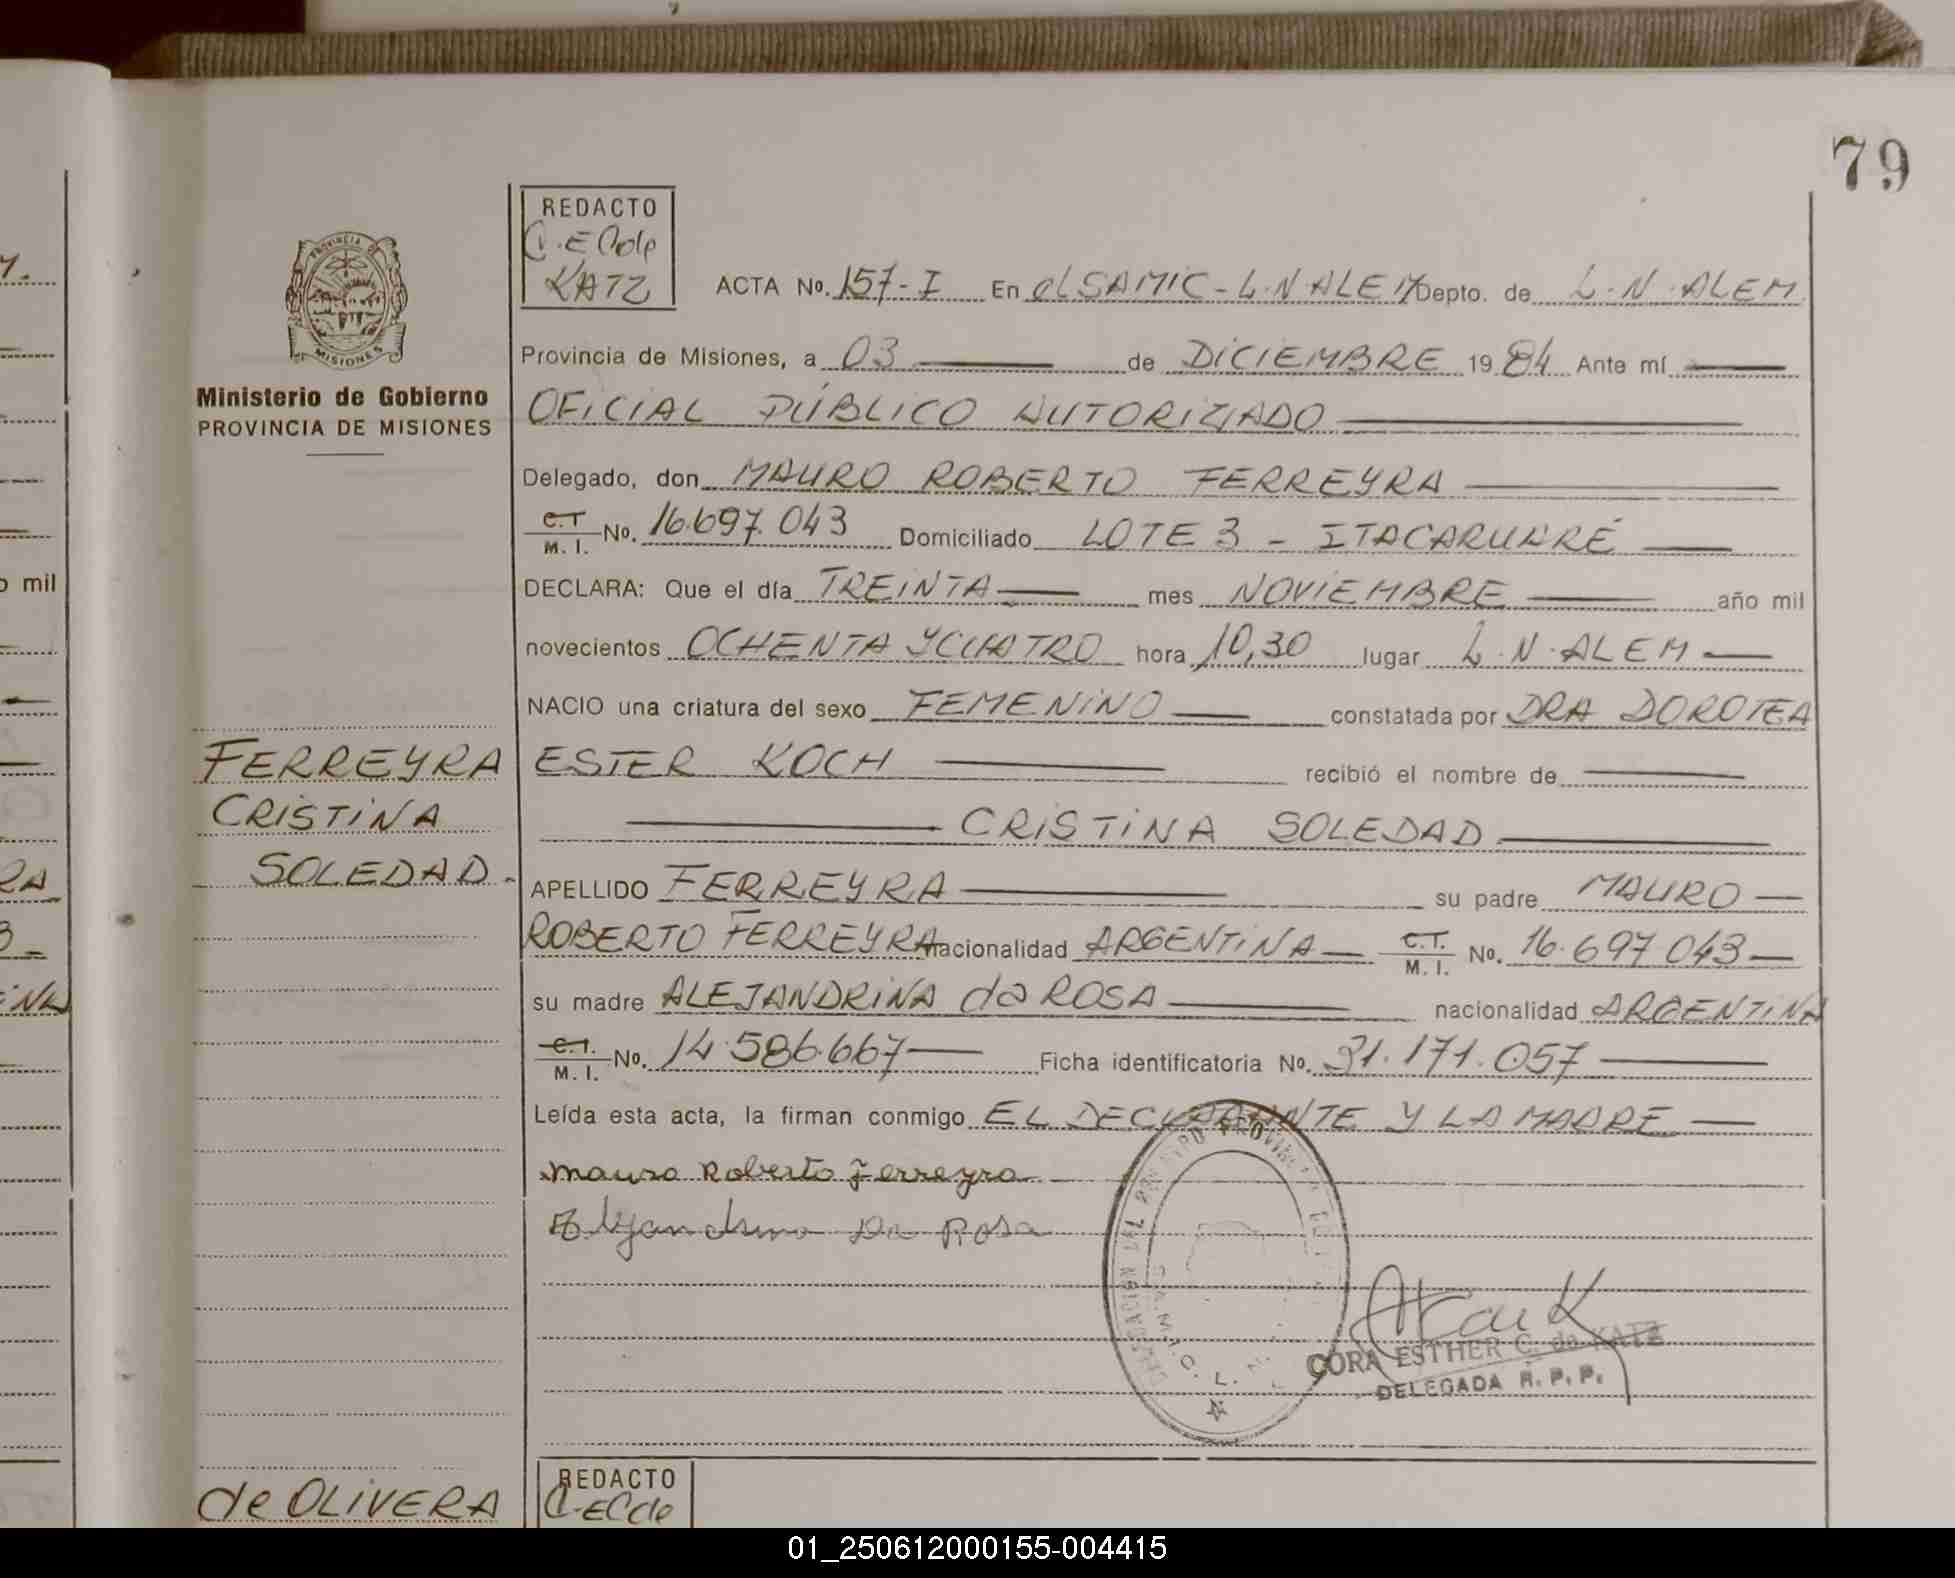 79
REDACTO
C.E.C de
KATZ
PROVINCIA DE
MISIONES
Ministerio de Gobierno
PROVINCIA DE MISIONES
ACTA No. 157-I En el SAMIC - L.N. ALEM Depto. de L.N. ALEM
Provincia de Misiones, a 03 de DICIEMBRE 1984 Ante mí
OFICIAL PÚBLICO AUTORIZADO
Delegado, don MAURO ROBERTO FERREYRA
C.T. M. I. No. 16.697.043 Domiciliado LOTE 3 - ITACARUARÉ
DECLARA: Que el día TREINTA mes NOVIEMBRE año mil
novecientos OCHENTA Y CUATRO hora 10,30 lugar L.N. ALEM
NACIO una criatura del sexo FEMENINO constatada por DRA DOROTEA
ESTER KOCH recibió el nombre de
CRISTINA SOLEDAD
APELLIDO FERREYRA su padre MAURO
ROBERTO FERREYRA nacionalidad ARGENTINA C.T. M. I. No. 16.697.043
su madre ALEJANDRINA da ROSA nacionalidad ARGENTINA
C.T. M. I. No. 14.586.667 Ficha identificatoria No. 31.171.057
Leída esta acta, la firman conmigo EL DECLARANTE Y LA MADRE
Mauro Roberto Ferreyra
Alejandrina Da Rosa
FERREYRA
CRISTINA
SOLEDAD.
CORA ESTHER C. de KATZ
DELEGADA R. P. P.
de OLIVERA
REDACTO
C.E.C de
o mil
RA
INA
01_250612000155-004415